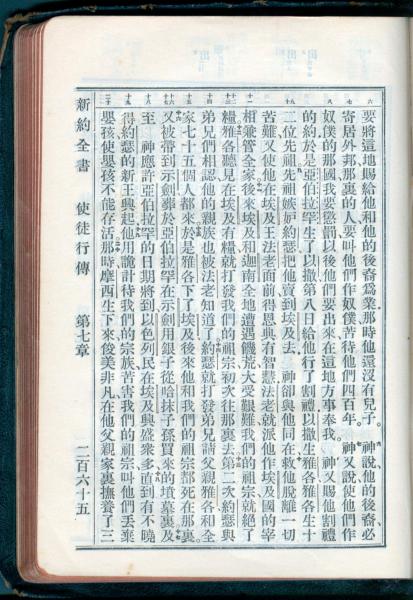 要將這地賜給他和他的後裔爲業那時他還沒有兒子。神說他的後裔必
寄居外邦那裏的人要叫他們作奴僕苦待他們四百年。神又說使他們作
奴僕的那國我要懲罰以後他們要出來在這地方事奉我。神又賜他割禮
的約於是亞伯拉罕生了以撒第八日給他行了割禮以撒生雅各雅各生十
二位先祖先祖嫉妒約瑟把他賣到埃及去。神卻與他同在救他脫離一切
苦難又使他在埃及王法老面前得恩典有智慧法老就派他作埃及國的宰
相兼管全家後來埃及和迦南全地遭遇饑荒大受艱難我們的祖宗就絕了
糧雅各聽見在埃及有糧就打發我們的祖宗初次往那裏去第二次約瑟與
弟兄們相認他的親族也被法老知道了約瑟就打發弟兄請父親雅各和全
家七十五個人都來於是雅各下了埃及後來他和我們的祖宗都死在那裏。
又被帶到示劍葬於亞伯拉罕在示劍用銀子從哈抹子孫買來的墳墓裏及
至 神應許亞伯拉罕的日期將到以色列民在埃及興盛衆多直到有不曉
得約瑟的新王興起他用詭計待我們的宗族苦害我們的祖宗叫他們丟棄
嬰孩使嬰孩不能存活那時摩西生下來俊美非凡在他父親家裏撫養了三
新約全書 使徒行傳 第七章 二百六十五